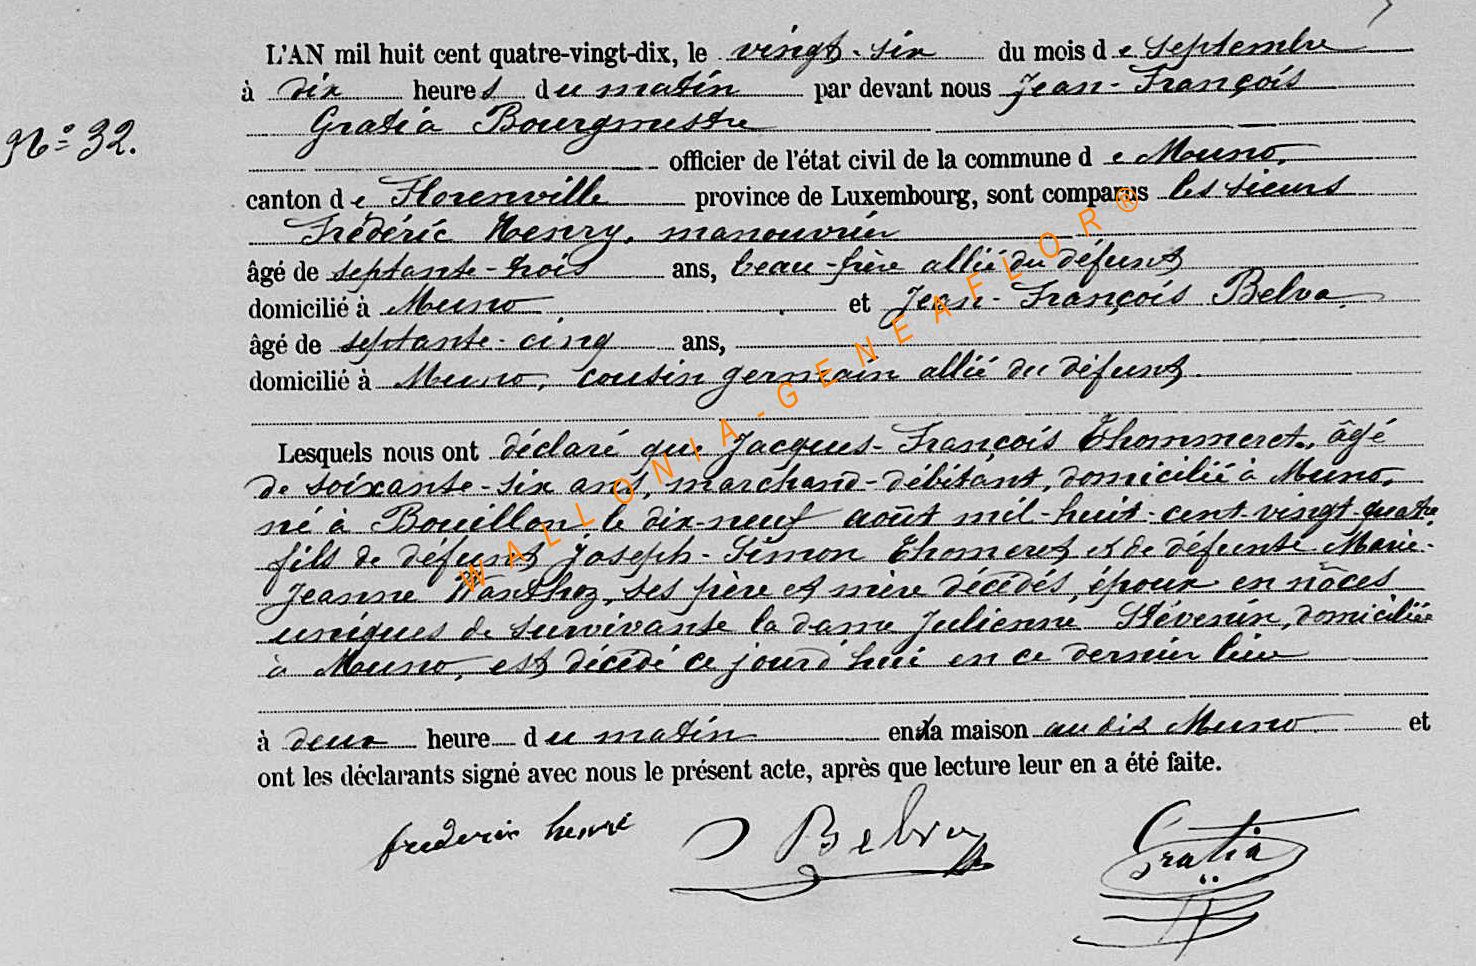 L'AN mil huit cent quatre-vingt-dix, le vingt-six du mois de Septembre
à dix heures du matin par devant nous Jean-François
Gratia Bourgmestre
N° 32.
officier de l'état civil de la commune de Muno,
canton de Florenville province de Luxembourg, sont comparus les sieurs
Frédéric Henry, manouvrier
âgé de septante-trois ans, beau-frère allié du défunt
domicilié à Muno et Jean-François Belva
âgé de septante-cinq ans,
domicilié à Muno, cousin germain allié du défunt.
Lesquels nous ont déclaré que Jacques-François Thommeret, âgé
de soixante-six ans, marchand-débitant, domicilié à Muno,
né à Bouillon le dix-neuf août mil-huit-cent-vingt-quatre
fils de défunt Joseph-Simon Thomeret et de défunte Marie-
Jeanne Wanthoz, ses père et mère décédés, époux en nôces
uniques de survivante la dame Julienne Stévenin, domiciliée
à Muno, est décédé ce jourd'hui en ce dernier lieu
à deux heure du matin en la maison au dit Muno et
ont les déclarants signé avec nous le présent acte, après que lecture leur en a été faite.
frederic henri J Belva Gratia
WALLONIA-GENEAFLOR®